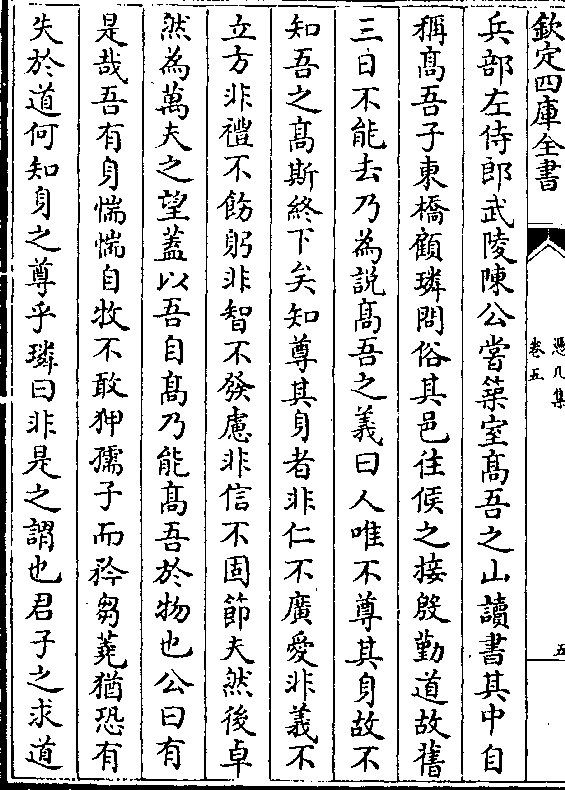 欽定四庫全書
憑几集
卷五
五
兵部左侍郎武陵陳公嘗築室髙吾之山讀書其中自
稱髙吾子東橋顧璘問俗其邑往候之接殷勤道故舊
三日不能去乃為説髙吾之義曰人唯不尊其身故不
知吾之髙斯終下矣知尊其身者非仁不廣愛非義不
立方非禮不飭躬非智不發慮非信不固節夫然後卓
然為萬夫之望葢以吾自髙乃能髙吾於物也公曰有
是哉吾有身惴惴自牧不敢狎孺子而矜芻蕘猶恐有
失於道何知身之尊乎璘曰非是之謂也君子之求道